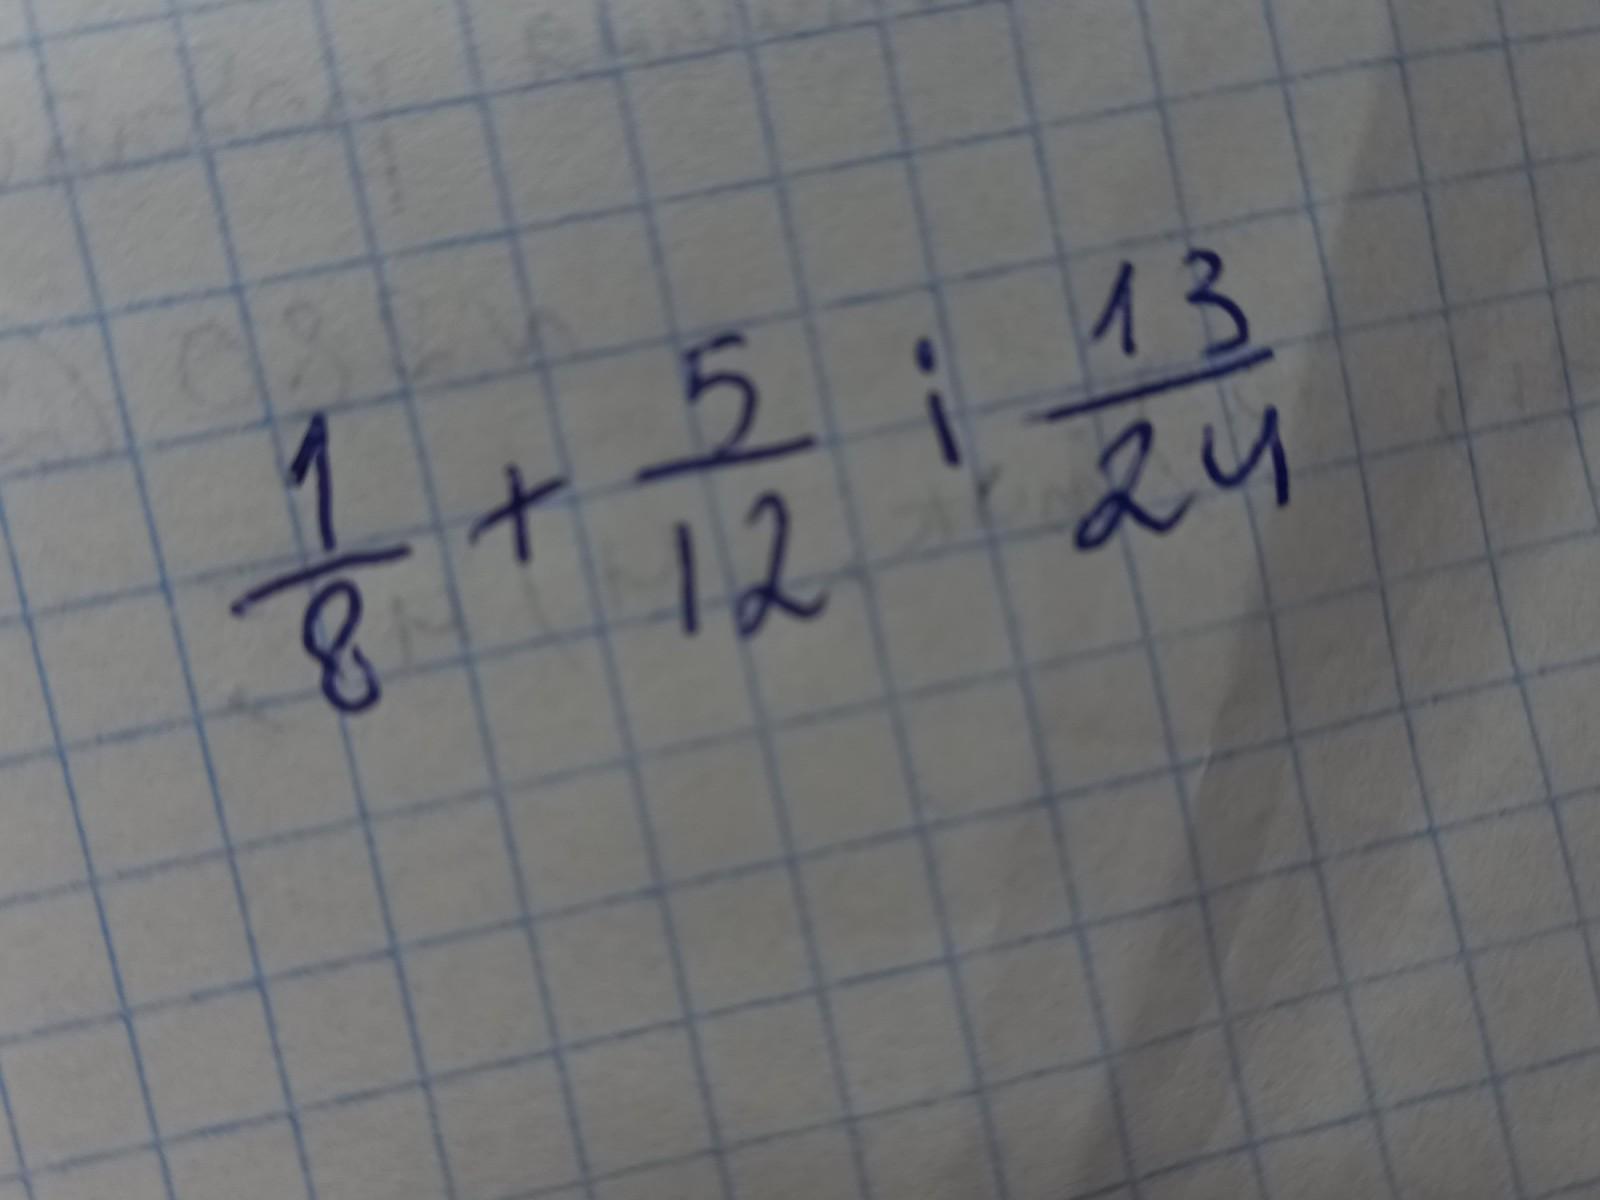 1/8 + 5/12 і 13/24